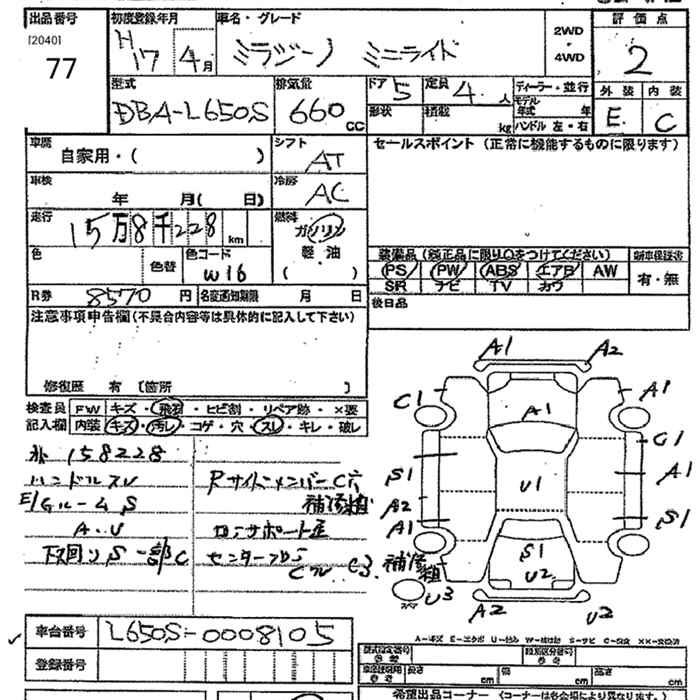 出品番号 初度登録年月 車名・グレード 評価点
[2040] H 17 4月 ミラジーノ ミニライト 2WD・4WD 2
77
型式 排気量 ドア 5 定員 4人 ディーラー・並行 外装 内装
DBA-L650S 660cc 形状 積載 kg モデル年式 年 E C
ハンドル 左・右
車歴 シフト セールスポイント (正常に機能するものに限ります)
自家用・( ) AT
車検 冷房
年 月( 日) AC
走行 燃料
15万8千228km ガソリン
色 色替 色コード 軽・油
W16 ( )
装備品 (純正品に限り○をつけてください) 新車保証書
PS PW ABS エアB AW 有・無
SR ナビ TV カワ
R券 8570円 名変通知期限 月 日 後日品
注意事項申告欄(不具合内容等は具体的に記入して下さい)
修復歴 有 [箇所 ]
検査員 FW キズ・飛石・ヒビ割・リペア跡・×要
記入欄 内装 キズ・汚レ・コゲ・穴・スレ・キレ・破レ
158228
ハンドルスレ RサイドメンバーC穴
E/Gルーム S 補修粗
A.U ロアサポート歪
下回り S 一部C センターフロア
C3 補修粗
A1 A2
C1 A1 A1
G1
S1 U1 A1
A2 S1
A1
S1
U2
スペア U3 A2 U2
A-キズ E-エクボ U-凹み W-補修跡 S-サビ C-腐食 XX-交換済
車台番号 L650S-0008105
登録番号
型式指定番号 参考 類別区分番号 参考
長さ cm 幅 cm 高さ cm
希望出品コーナー (コーナーは各会場により異なります。)